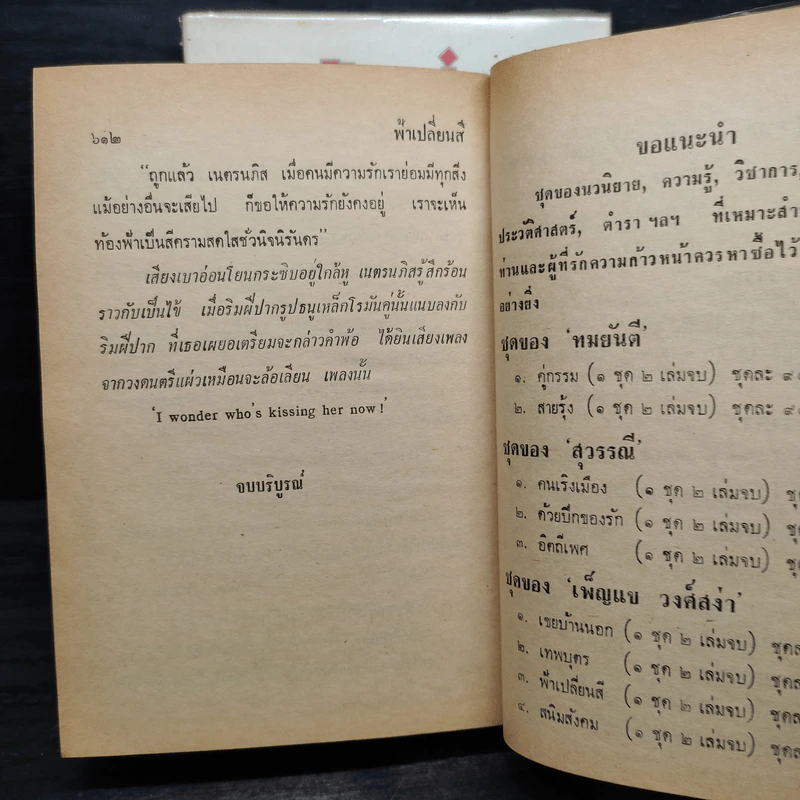 ๖๑๒ ฟ้าเปลี่ยนสี
“ถูกแล้ว เนตรนภิส เมื่อคนมีความรักเราย่อมมีทุกสิ่ง
แม้อย่างอื่นจะเสียไป ก็ขอให้ความรักยังคงอยู่ เราจะเห็น
ท้องฟ้าเป็นสีครามสดใสชั่วนิจนิรันดร”
เสียงเบาอ่อนโยนกระซิบอยู่ใกล้หู เนตรนภิสรู้สึกร้อน
ราวกับเป็นไข้ เมื่อริมฝีปากรูปธนูเหล็กโรมันคู่นั้นแนบลงกับ
ริมฝีปาก ที่เธอเผยอเตรียมจะกล่าวคำพ้อ ได้ยินเสียงเพลง
จากวงดนตรีแผ่วเหมือนจะล้อเลียน เพลงนั้น
‘I wonder who's kissing her now!’
จบบริบูรณ์
ขอแนะนำ
ชุดของนวนิยาย, ความรู้, วิชาการ,
ประวัติศาสตร์, ตำรา ฯลฯ ที่เหมาะสำ
ท่านและผู้ที่รักความก้าวหน้าควรหาซื้อไว้
อย่างยิ่ง
ชุดของ ‘ทมยันตี’
๑. คู่กรรม (๑ ชุด ๒ เล่มจบ) ชุดละ
๒. สายรุ้ง (๑ ชุด ๒ เล่มจบ) ชุดละ
ชุดของ ‘สุวรรณี’
๑. คนเริงเมือง (๑ ชุด ๒ เล่มจบ)
๒. ด้วยปีกของรัก (๑ ชุด ๒ เล่มจบ)
๓. อิตถีเพศ (๑ ชุด ๒ เล่มจบ)
ชุดของ ‘เพ็ญแข วงศ์สง่า’
๑. เขยบ้านนอก (๑ ชุด ๒ เล่มจบ)
๒. เทพบุตร (๑ ชุด ๒ เล่มจบ)
๓. ฟ้าเปลี่ยนสี (๑ ชุด ๒ เล่มจบ)
๔. สนิมสังคม (๑ ชุด ๒ เล่มจบ)